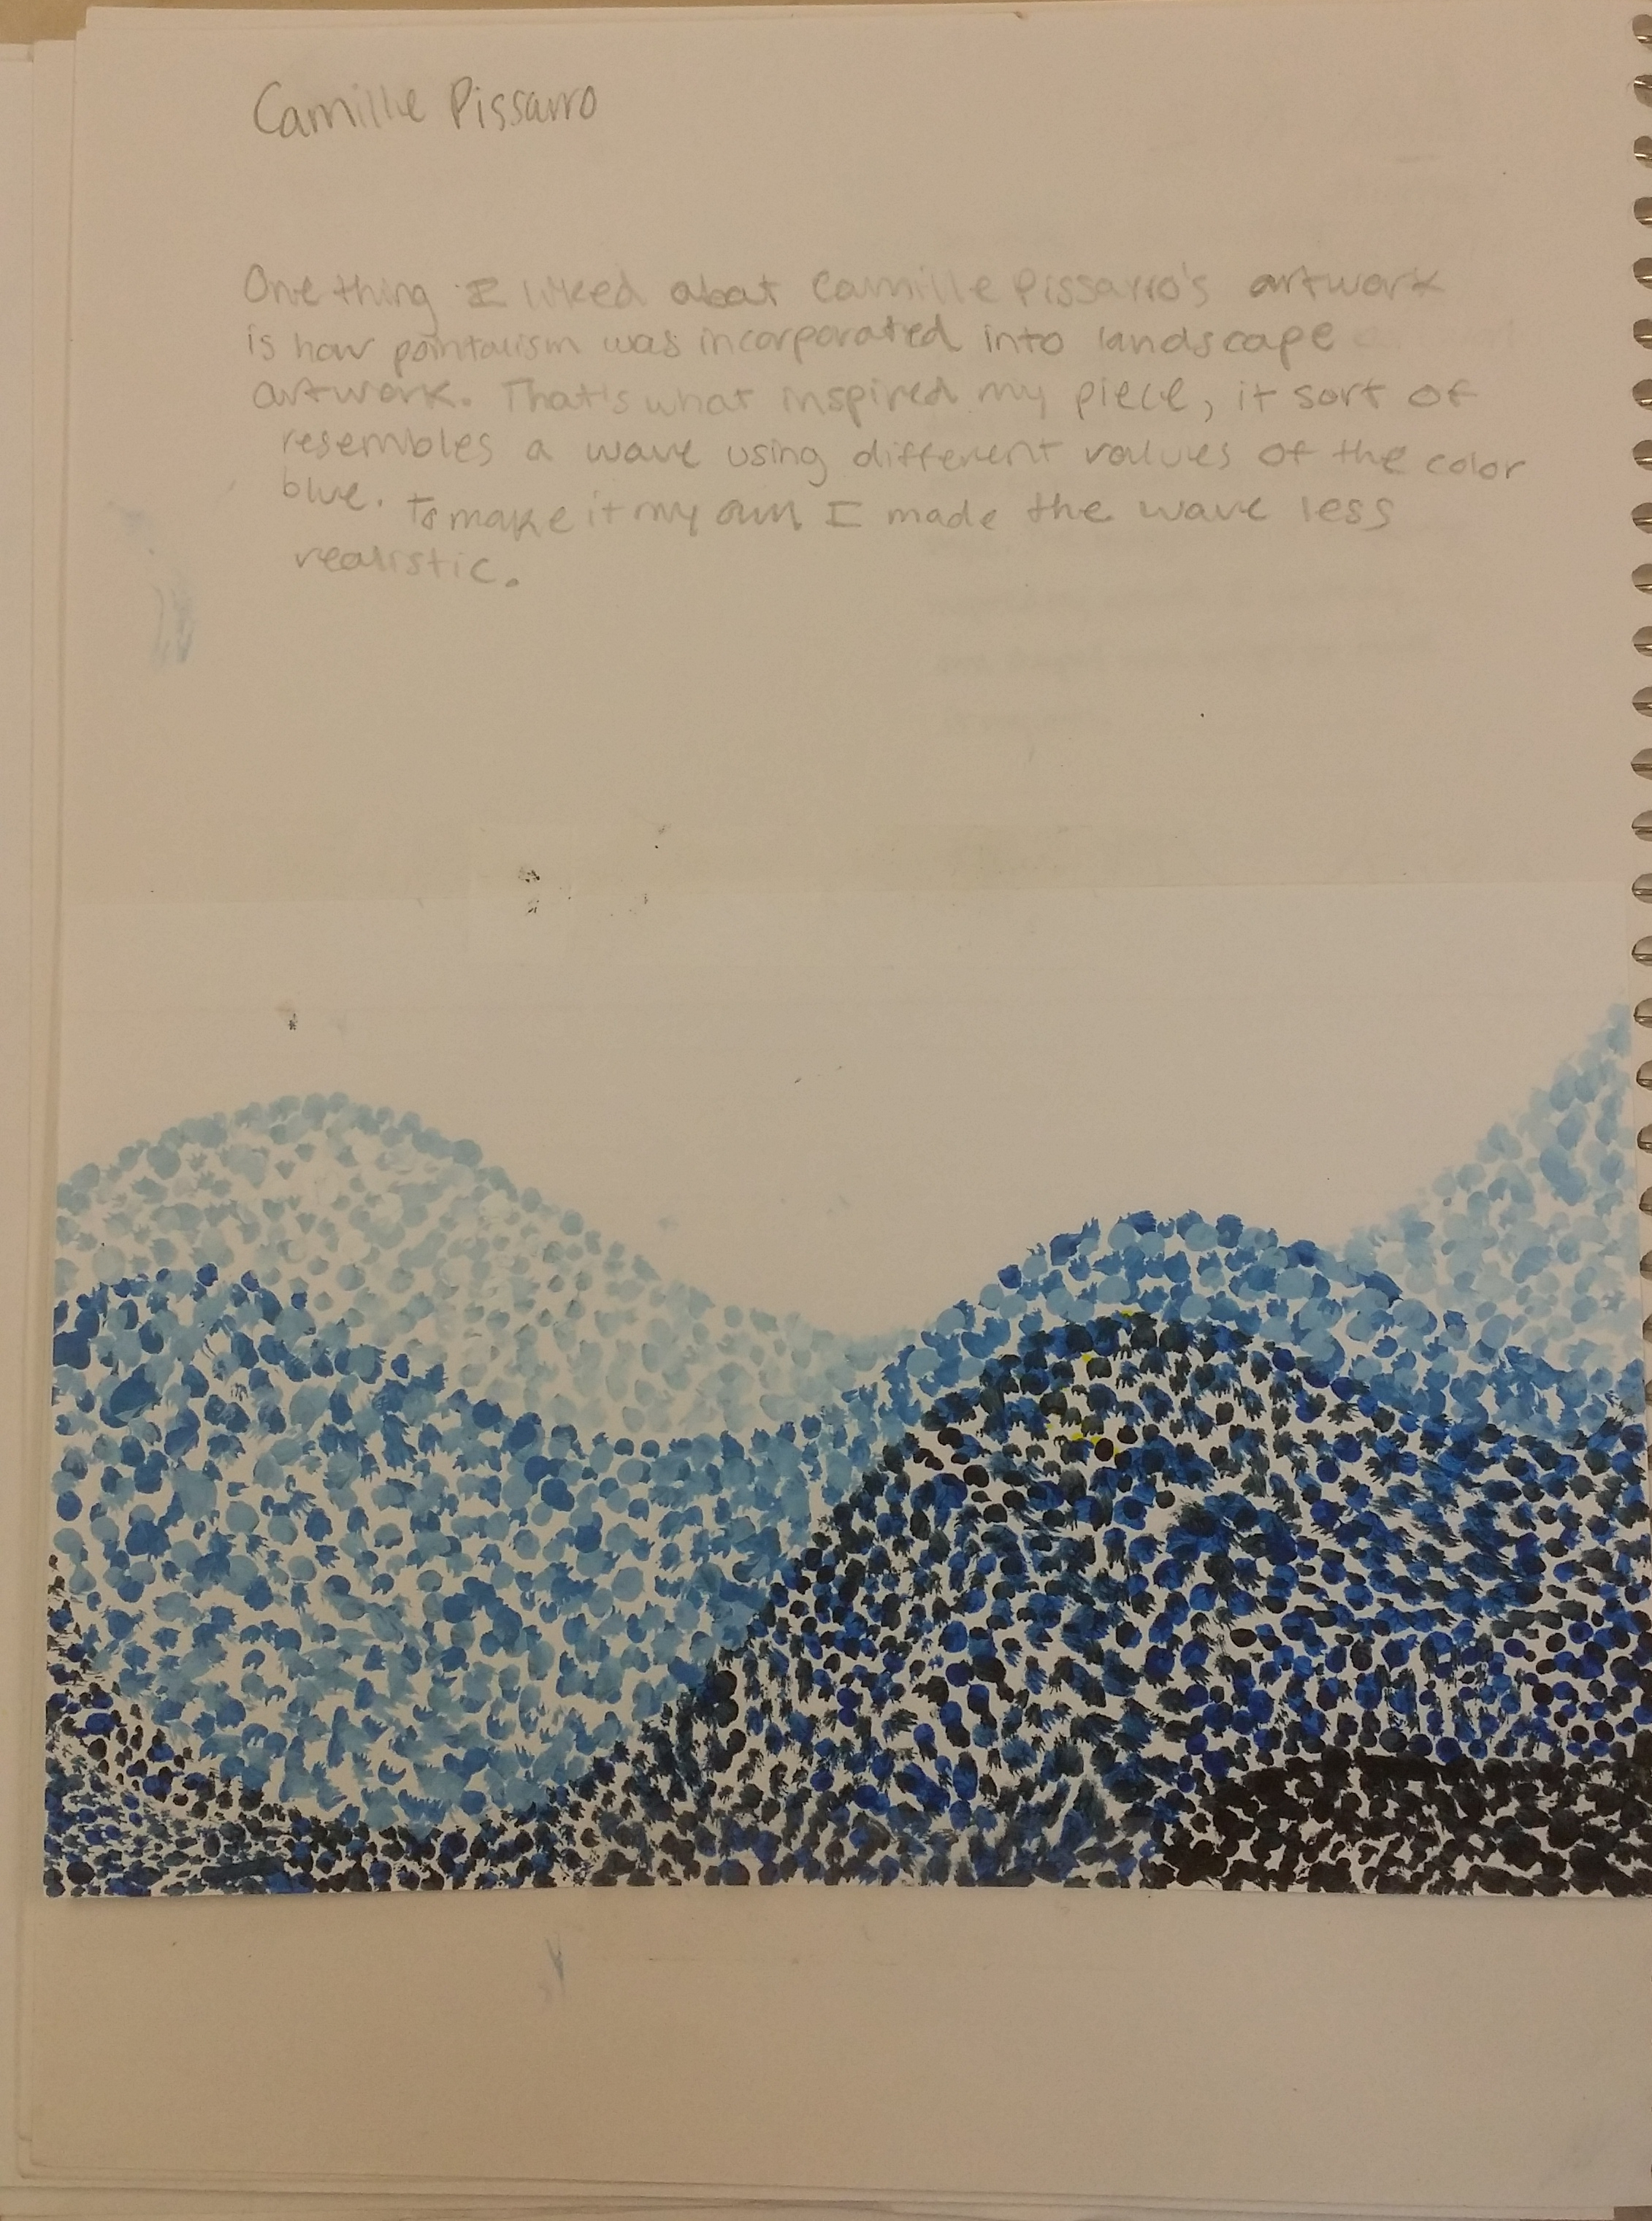 Camille Pissarro
One thing I liked about Camille Pissarro's artwork
is how pointalism was incorporated into landscape
artwork. That's what inspired my piece, it sort of
resembles a wave using different values of the color
blue. To make it my own I made the wave less
realistic.